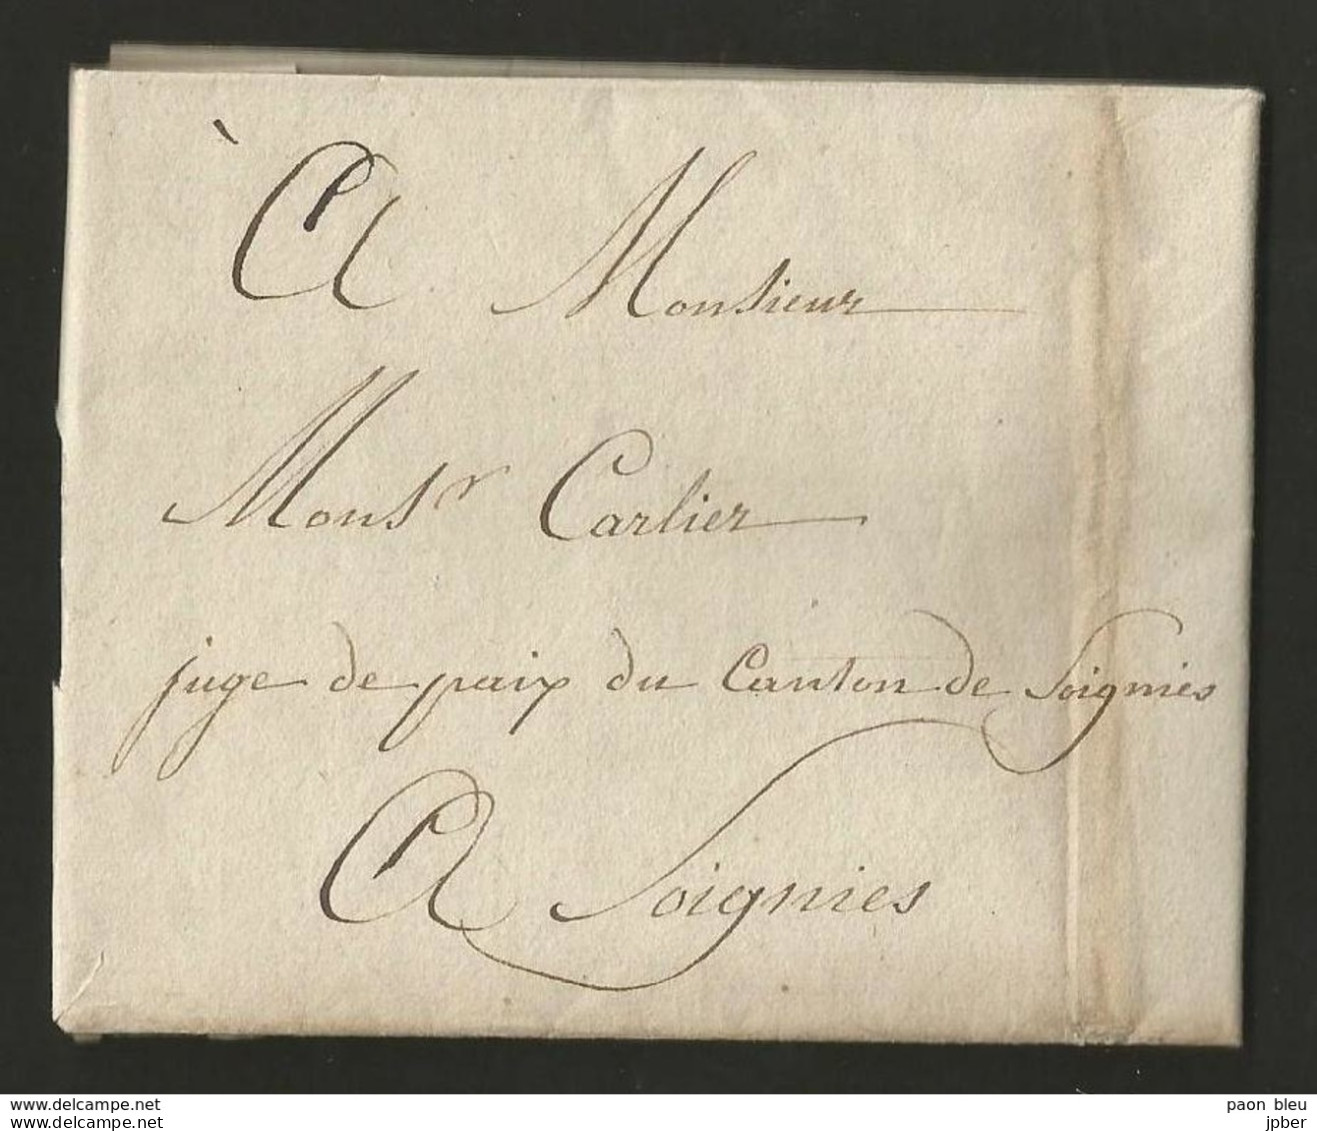 À Monsieur
Monsr Carlier
juge de paix du Canton de Soignies
A Soignies
www.delcampe.net
www.delcampe.net
paon bleu
jpber